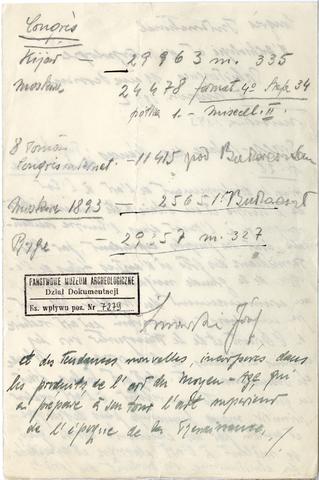 Congrès
Kijów — 29963 m. 335
Moskwa 24478 format 4°
półka 1. — Miscell. II
8 Tomów
Congrès internat. — 11415 pod
Moskwa 1893 — 2565 1.
Ryga — 29257 m. 327
PAŃSTWOWE MUZEUM ARCHEOLOGICZNE
Dział Dokumentacji
Ks. wpływu poz. Nr 7279
et des tendances nouvelles, incorporés dans
les produits de l'art du Moyen-Age qui
a préparé à son tour l'art supérieur
de l'époque de la Renaissance.